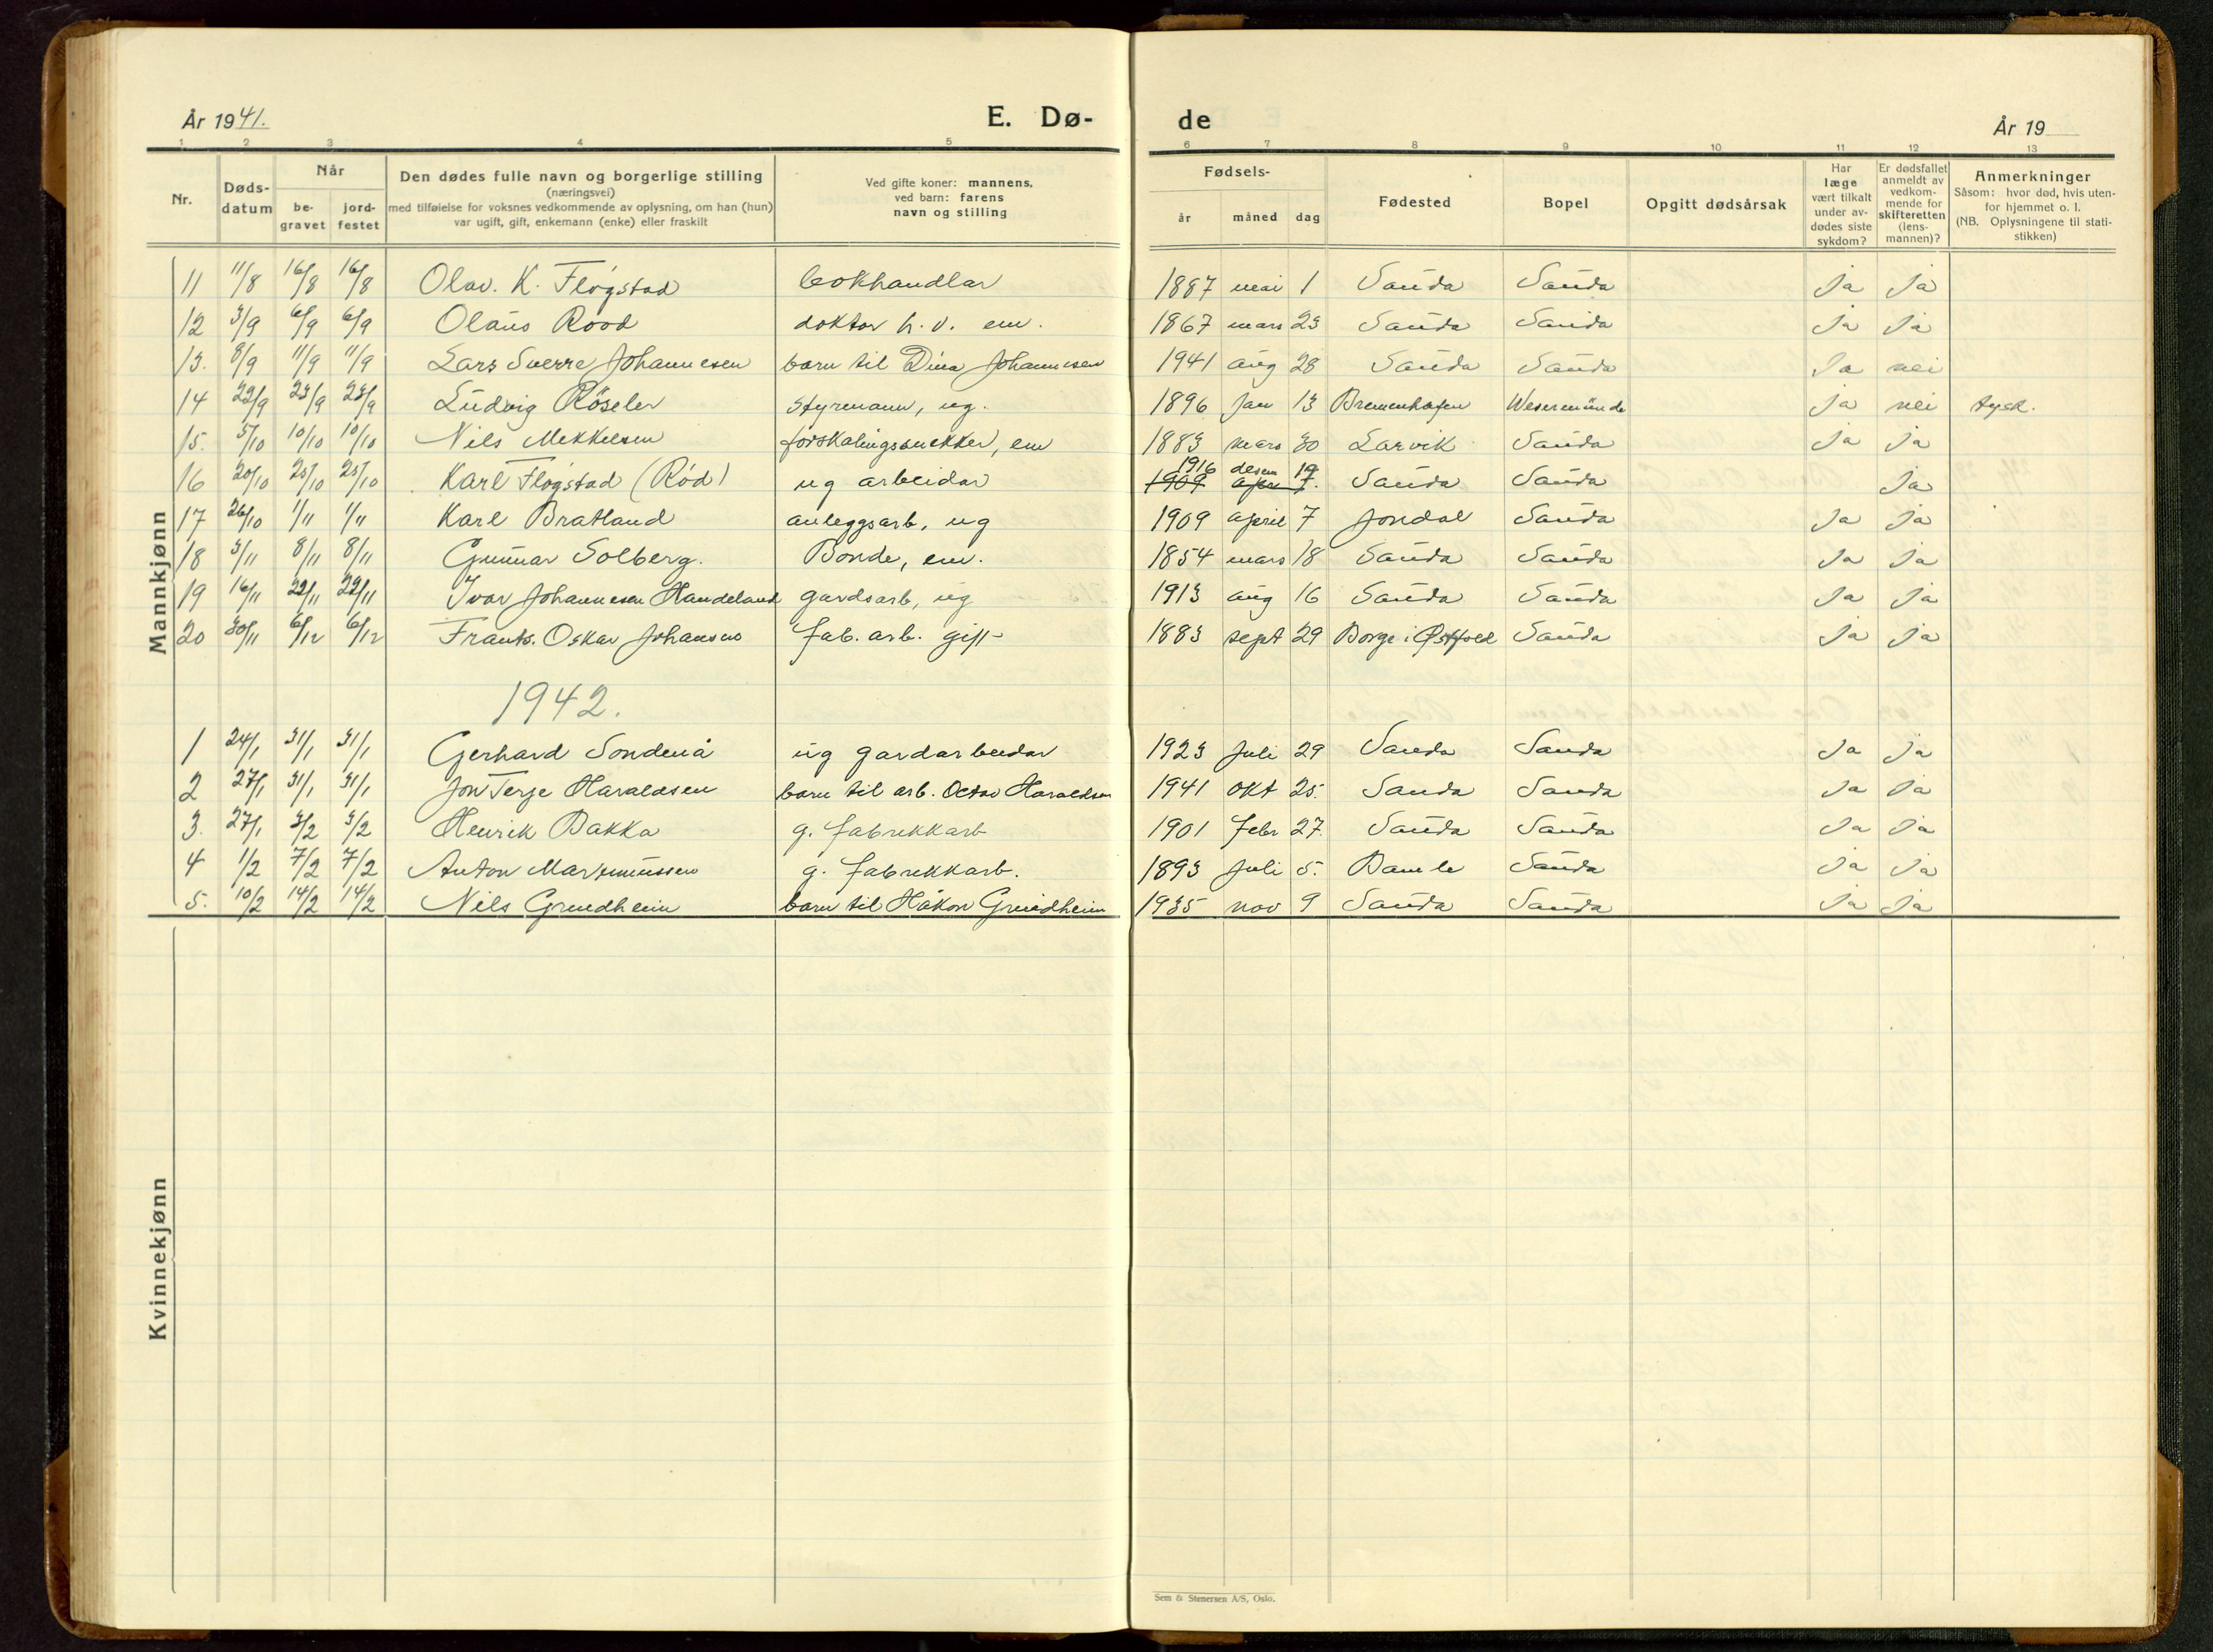 År 1941.
E. Dø-
de
År 19
1 2 3 4 5 6 7 8 9 10 11 12 13
Nr.
Døds-
datum
Når
be-
gravet
jord-
festet
Den dødes fulle navn og borgerlige stilling
(næringsvei)
med tilføielse for voksnes vedkommende av oplysning, om han (hun)
var ugift, gift, enkemann (enke) eller fraskilt
Ved gifte koner: mannens,
ved barn: farens
navn og stilling
Fødsels-
år måned dag
Fødested
Bopel
Opgitt dødsårsak
Har
læge
vært tilkalt
under av-
dødes siste
sykdom?
Er dødsfallet
anmeldt av
vedkom-
mende for
skifteretten
(lens-
mannen)?
Anmerkninger
Såsom: hvor død, hvis uten-
for hjemmet o. l.
(NB. Oplysningene til stati-
stikken)
Mannkjønn
11 11/8 16/8 16/8 Olav. K. Fløgstad bokhandlar 1887 mai 1 Sanda Sanda Ja Ja
12 3/9 6/9 6/9 Olaus Rood doktor h.v. em. 1867 mars 23 Sanda Sanda Ja Ja
13. 8/9 11/9 11/9 Lars Sverre Johannesen barn til Dina Johannesen 1941 aug 28 Sanda Sanda Ja nei
14 22/9 23/9 23/9 Ludvig Röseler Styrmann, ug. 1896 Jan 13 Bremenhafen Wesermünde Ja nei tysk.
15. 5/10 10/10 10/10 Nils Mekkelsen forskalingssnekker, em 1883 mars 30 Larvik Sanda Ja Ja
16 20/10 25/10 25/10 Karl Fløgstad (Rød) ug arbeidar 1916 desem 19 1909 apr 7. Sanda Sanda Ja
17 26/10 1/11 1/11 Karl Bratland anleggsarb, ug 1909 april 7 Jondal Sanda Ja Ja
18 3/11 8/11 8/11 Gunnar Solberg. Bonde, em. 1854 mars 18 Sanda Sanda Ja Ja
19 16/11 22/11 22/11 Ivar Johannesen Handeland gardsarb, ug 1913 aug 16 Sanda Sanda Ja Ja
20 30/11 6/12 6/12 Frants. Oskar Johansen fab. arb. gift 1883 sept 29 Borge i Østfold Sanda Ja Ja
1942.
1 24/1 31/1 31/1 Gerhard Sondenå ug gardarbeidar 1923 Juli 29 Sanda Sanda Ja Ja
2 27/1 31/1 31/1 Jon Terje Haraldsen barn til arb. Octav Haraldsen 1941 okt 25. Sanda Sanda Ja Ja
3. 27/1 3/2 3/2 Henrik Bakka g. fabrikkarb 1901 febr 27. Sanda Sanda Ja Ja
4 1/2 7/2 7/2 Anton Marthinussen g. fabrikkarb. 1893 Juli 5. Bamle Sanda Ja Ja
5. 10/2 14/2 14/2 Nils Grindheim barn til Håkon Grindheim 1935 nov 9 Sanda Sanda Ja Ja
Kvinnekjønn
Sem & Stenersen A/S, Oslo.